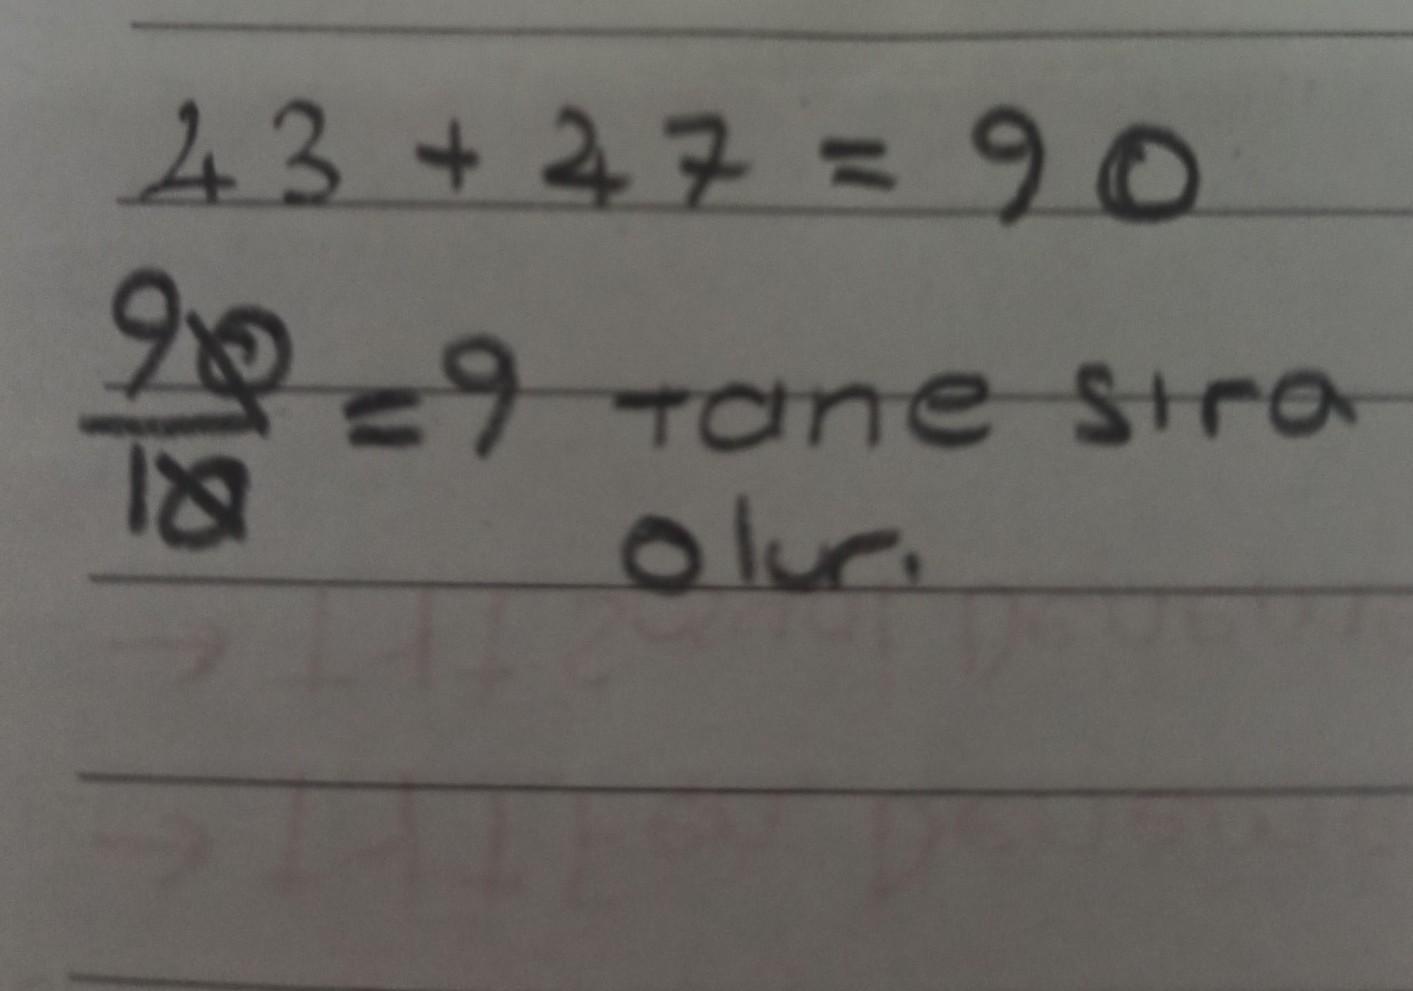 43 + 47 = 90
90/10 = 9 tane sıra
olur.